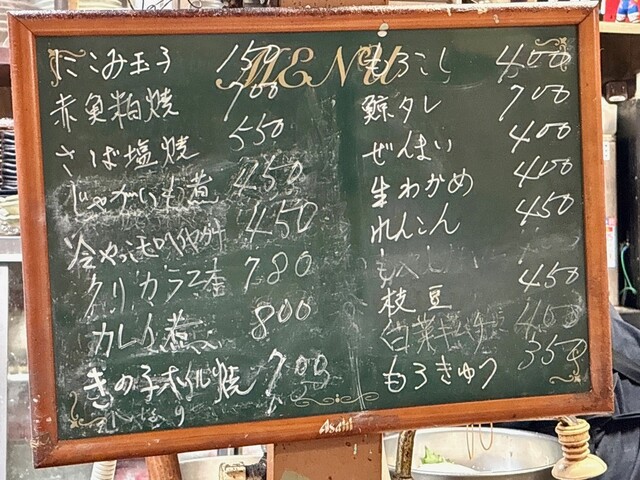 MENU
にこみ玉子 150
赤魚粕焼 700
さば塩焼 550
じゃがいも煮 450
冷やっこ 450
クリカラ2本 780
カレイ煮 800
きの子ホイル焼 700
もろこし 400
鯨タレ 700
ぜんまい 400
生わかめ 400
れんこん 450
枝豆 450
白菜 400
もろきゅう 350
Asahi